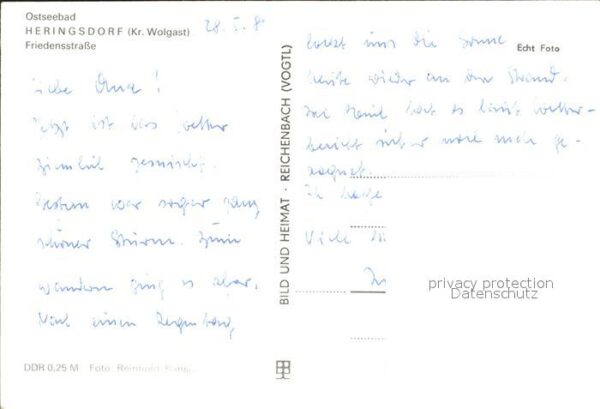 Ostseebad
HERINGSDORF (Kr. Wolgast)
Friedensstraße
28. 5. 8
Liebe Oma!
Jetzt ist das Wetter
ziemlich gemischt.
Gestern war sogar ganz
schöner Sturm. Zum
wandern ging es aber.
Nach einem Regentag
DDR 0,25 M Foto: Reinhold
BILD UND HEIMAT · REICHENBACH (VOGTL)
Echt Foto
lockt uns die Sonne
heute wieder an den Strand.
hat es laut Wetter-
bericht sicher noch mehr ge-
regnet.
Ich
Viele
privacy protection
Datenschutz